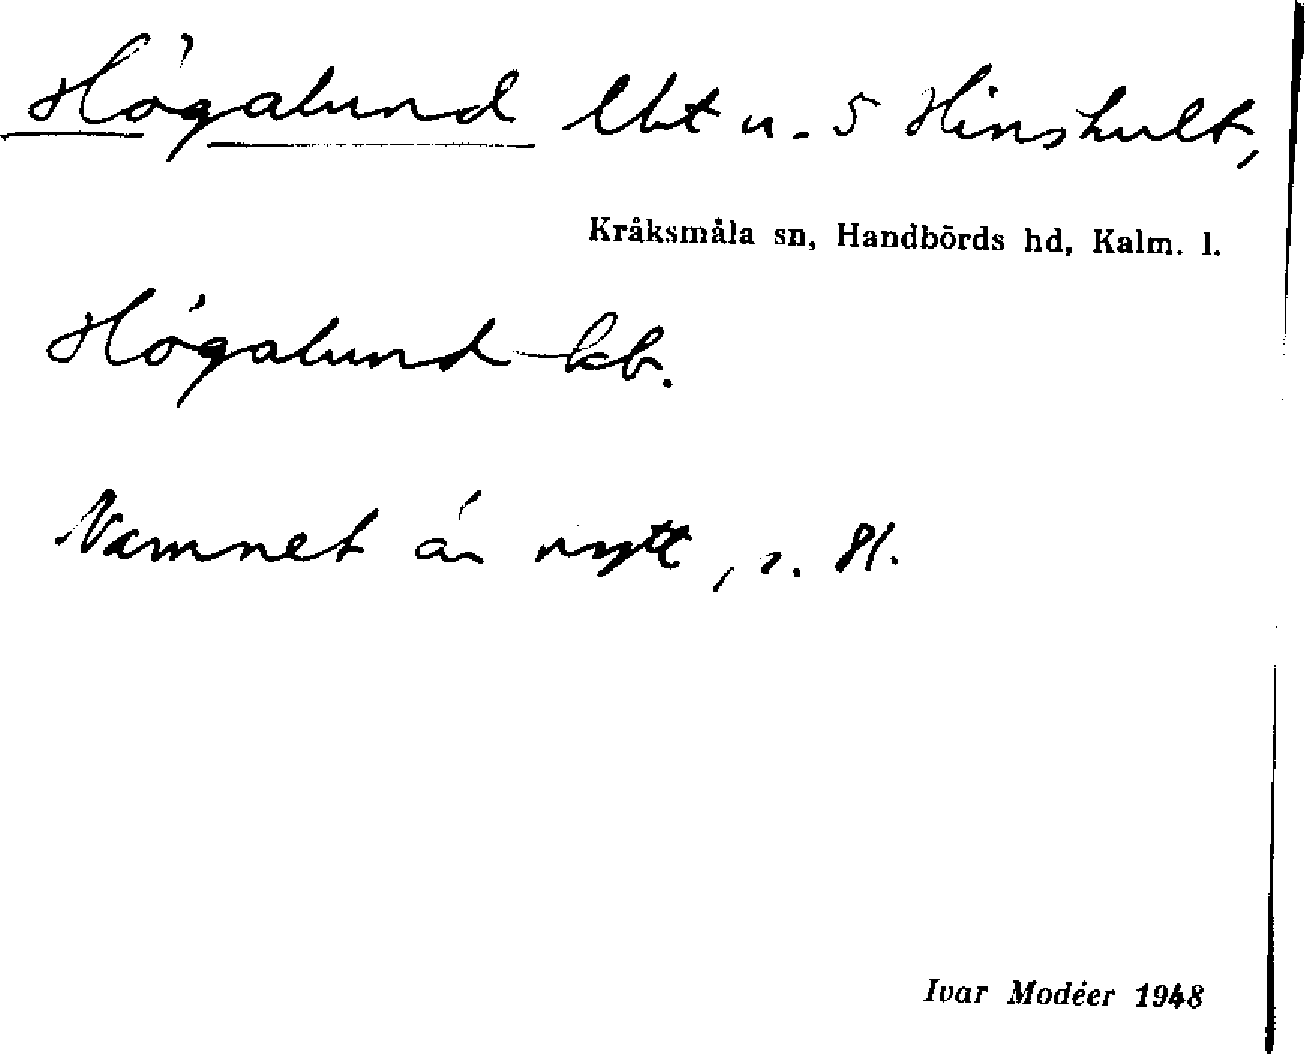 Högalund lht u. 5 Hinshult,
Kråksmåla sn, Handbörds hd, Kalm. l.
Högalund kb.
Namnet är nytt, s. Pl.
Ivar Modéer 1948